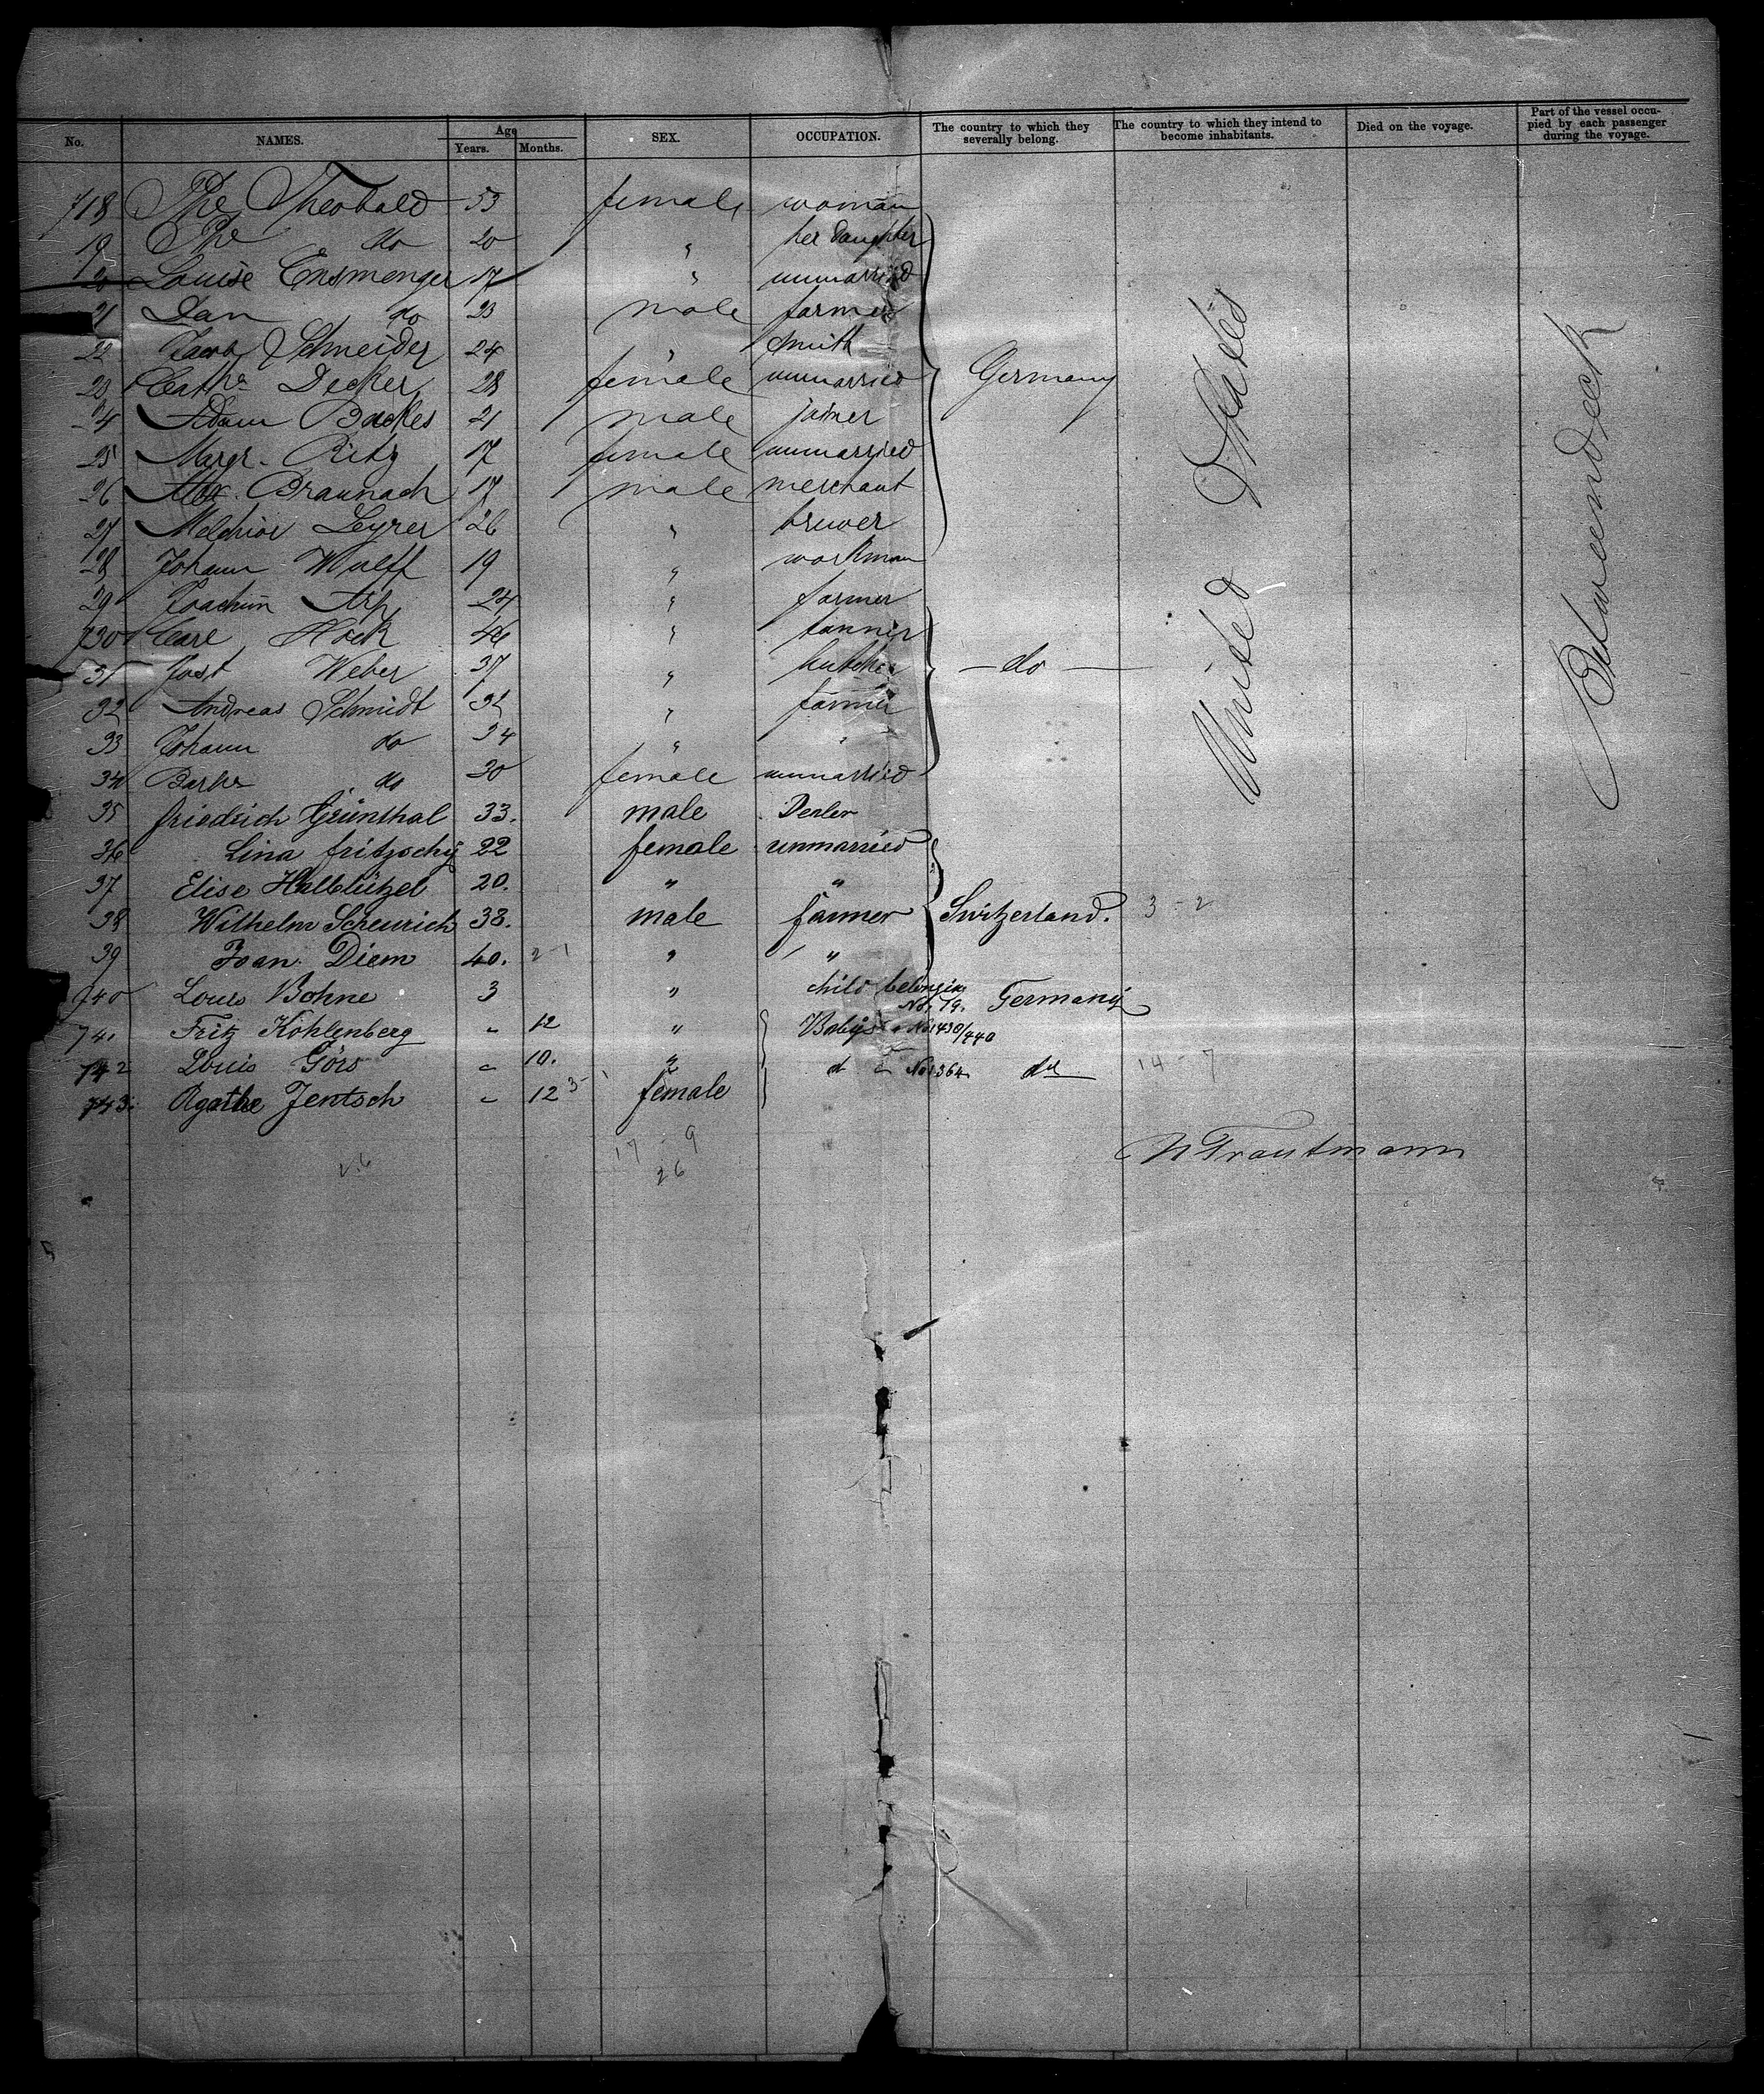 No. NAMES. Age Years. Months. SEX. OCCUPATION. The country to which they severally belong. The country to which they intend to become inhabitants. Died on the voyage. Part of the vessel occupied by each passenger during the voyage.
718 Phe Theobald 53 female woman
19 Phe do 20 " her daughter
20 Louise Ensmenger 17 " unmarried
21 Dan do 23 male farmer
22 Jacob Schneider 24 " smith
23 Cath. Decker 28 female unmarried Germany
24 Adam Backes 21 male joiner
25 Margr. Ritz 17 female unmarried
26 Alex. Braunach 17 male merchant
27 Melchior Leyrer 26 " brewer
28 Johann Wulff 19 " workman
29 Joachim Arp 24 " farmer
730 Carl Hock 46 " tanner
31 Jost Weber 37 " butcher — do —
32 Andreas Schmidt 32 " farmer
33 Johann do 34 " "
34 Barbr do 30 female unmarried
35 friedrich Grünthal 33. male Dealer
36 Lina fritzschy 22 female unmarried
37 Elise Halblützel 20. " "
38 Wilhelm Scheurich 38. male farmer Switzerland. 3 - 2
39 Joan. Diem 40. 2 - 1 " "
740 Louis Bohne 3 " child belonging No. 79. Germany
741 Fritz Kohlenberg " 12 " Babys " No. 430/440
742 Louis Görs " 10. " d " No. 364 do 14 - 7
743. Agathe Jentsch " 12 3 - 1 female
United States
Betweendeck
17 - 9
26
N Trautmann